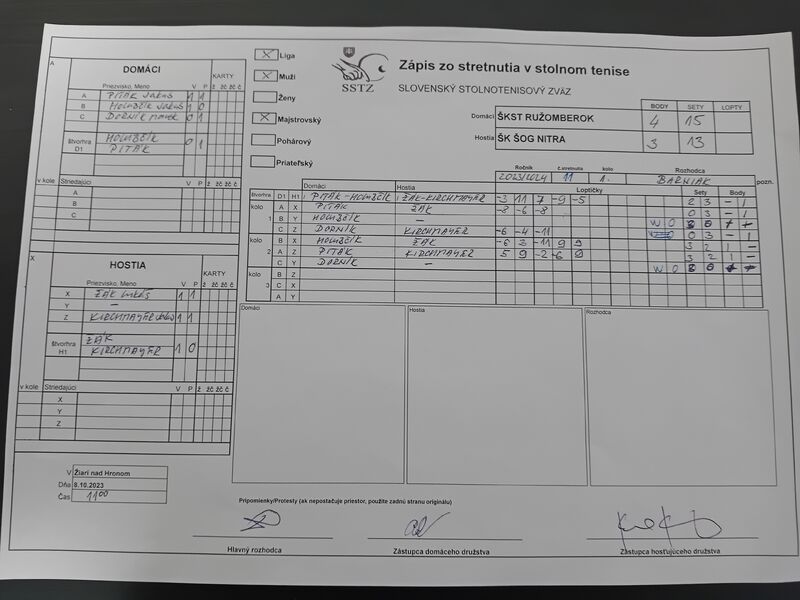 Zápis zo stretnutia v stolnom tenise
SLOVENSKÝ STOLNOTENISOVÝ ZVÄZ
SSTZ
X Liga
X Muži
Ženy
X Majstrovský
Pohárový
Priateľský
BODY SETY LOPTY
Domáci ŠKST RUŽOMBEROK 4 15
Hostia ŠK ŠOG NITRA 3 13
Ročník č.stretnutia kolo Rozhodca
2023/2024 11 1. BARNIAK pozn.
A DOMÁCI
KARTY
Priezvisko, Meno V P ž žč žč č
A PITÁK 1 1
B HOLUBČÍK 1 0
C DORNÍK 0 1
štvorhra D1 HOLUBČÍK 0 1
PITÁK
v kole Striedajúci V P ž žč žč č
A
B
C
X HOSTIA
KARTY
Priezvisko, Meno V P ž žč žč č
X ŽÁK Lukáš 1 1
Y –
Z KIRCHMAYER 1 1
štvorhra H1 ŽÁK 1 0
KIRCHMAYER
v kole Striedajúci V P ž žč žč č
X
Y
Z
Domáci Hostia Loptičky Sety Body
štvorhra D1 H1 PITÁK-HOLUBČÍK ŽÁK-KIRCHMAYER -3 11 7 -9 -5 2 3 – 1
kolo 1 A X PITÁK ŽÁK -8 -6 -8 0 3 – 1
B Y HOLUBČÍK – W O
C Z DORNÍK KIRCHMAYER -6 -4 -11 0 3 – 1
kolo 2 B X HOLUBČÍK ŽÁK -6 3 -11 9 9 3 2 1 –
A Z PITÁK KIRCHMAYER 5 9 -2 -6 9 3 2 1 –
C Y DORNÍK – W O
kolo 3 B Z
C X
A Y
Domáci
Hostia
Rozhodca
V Žiari nad Hronom
Dňa 8.10.2023
Čas 11 00
Pripomienky/Protesty (ak nepostačuje priestor, použite zadnú stranu originálu)
Hlavný rozhodca
Zástupca domáceho družstva
Zástupca hosťujúceho družstva